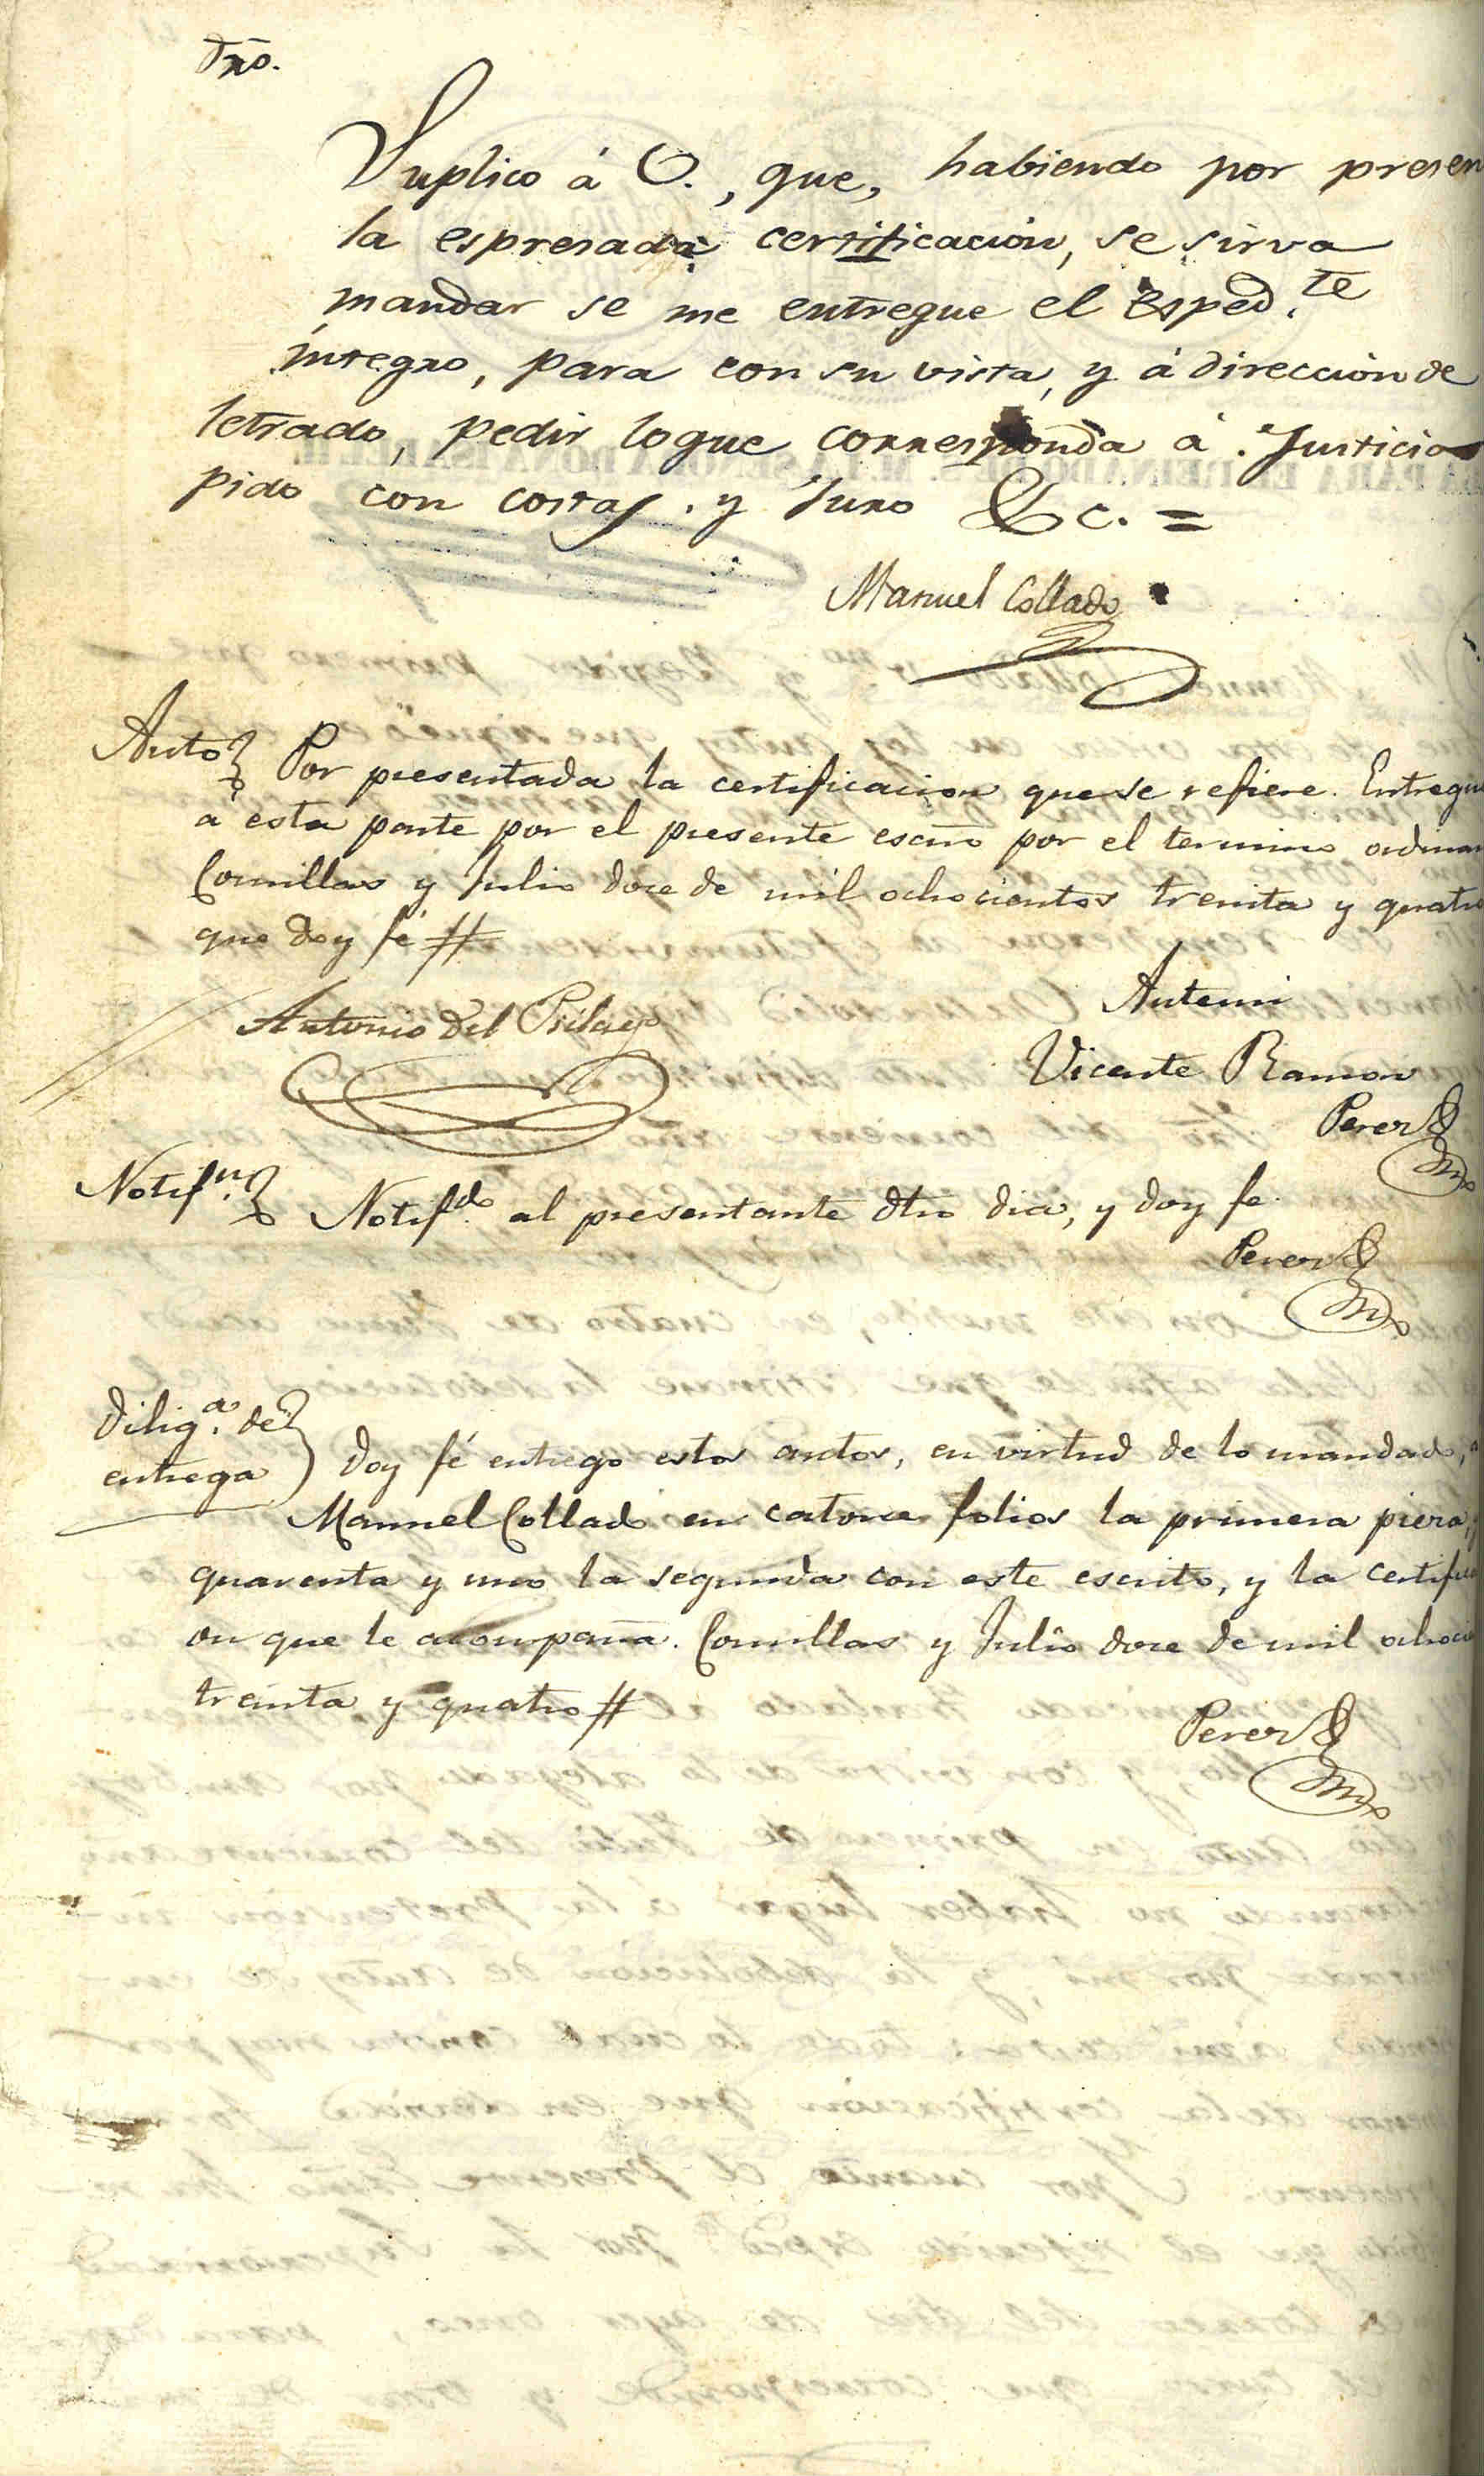 dño.
Suplico á V., que, habiendo por presen
la espresada certificación, se sirva
mandar se me entregue el esped.te
integro, para con su vista, y á dirección de
letrado, pedir loque corresponda á Justicia
pido con costas. y Juro &c. =
Manuel Collado
Auto Por presentada la certificacion que se refiere. Entregue
á esta parte por el presente escño por el termino ordinar
Comillas y Julio doce de mil ochocientos treinta y quatro
que doy fé #
Antonio del
Antemi
Vicente Ramon
Perez
Notif.n Notif.do al presentante dho dia, y doy fe.
Perez
Dilig.a de
entrega Doy fé entrego estos autos, en virtud de lo mandado, a
Manuel Collado en catorce folios la primera pieza, y
quarenta y uno la segunda con este escrito, y la certifica
on que le acompaña. Comillas y Julio doce de mil ochoci
treinta y quatro #
Perez